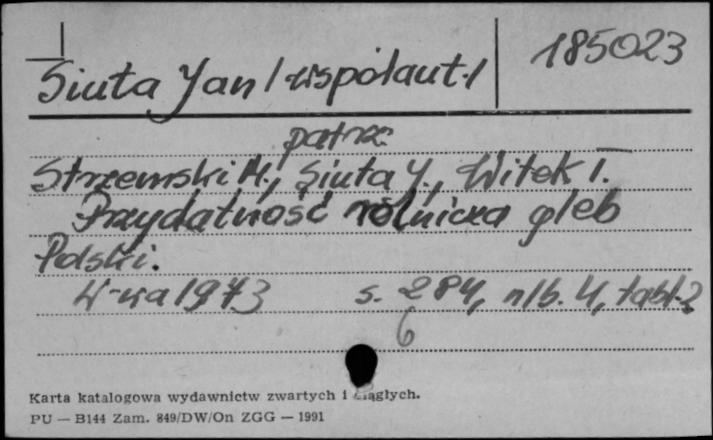 185023
Siuta Jan /współaut./
patrz:
Strzemski M., Siuta J., Witek T.
Przydatność rolnicza gleb
Polski.
W-wa 1973 s. 284, nlb. 4, tabl. 2
6
Karta katalogowa wydawnictw zwartych i ciągłych.
PU — B144 Zam. 849/DW/On ZGG — 1991